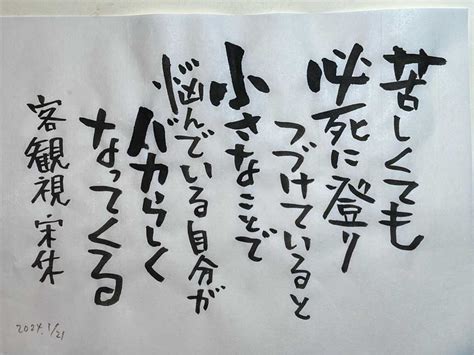 苦しくても
必死に登り
つづけていると
小さなことで
悩んでいる自分が
バカらしく
なってくる
客観視 宗休
2024.1/21